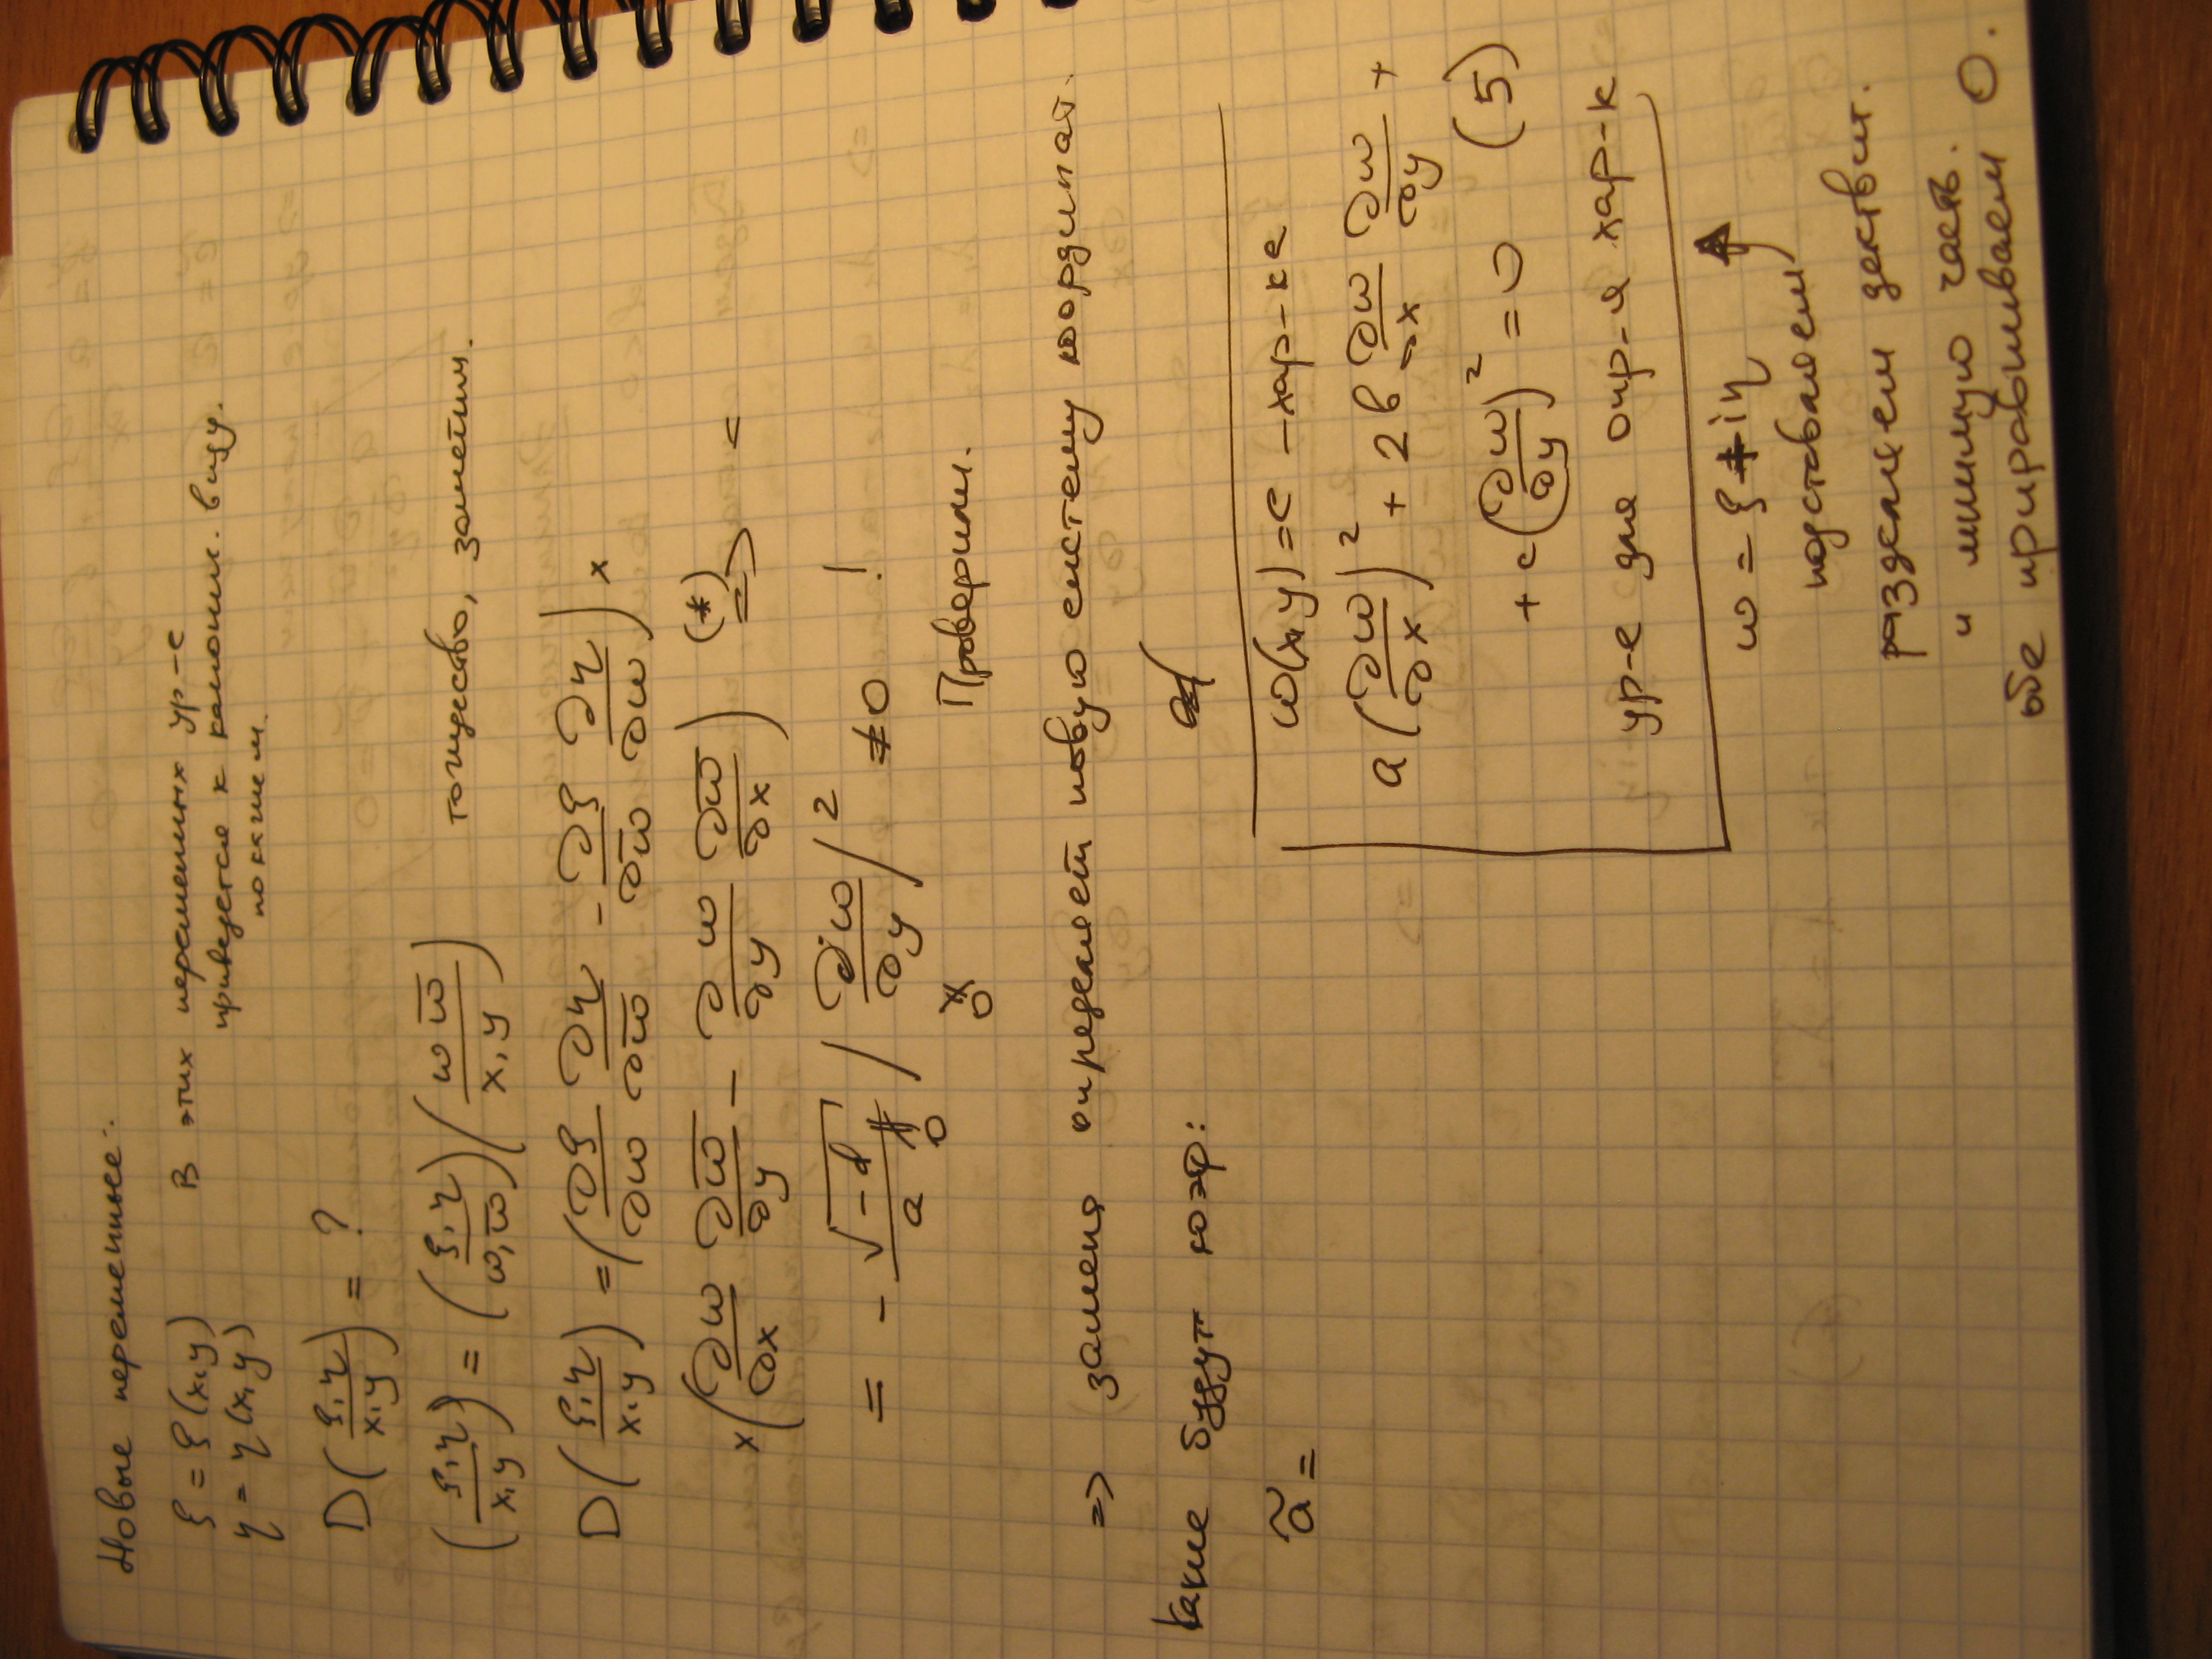 Новые переменные:
ξ = ξ(x,y)
η = η(x,y)
В этих переменных ур-е
приведется к канонич. виду.
покажем.
D(ξ,η / x,y) = ?
(ξ,η / x,y) = (ξ,η / ω,ω̅)(ω ω̅ / x,y) тождество, заметим.
D(ξ,η / x,y) = (∂ξ/∂ω ∂η/∂ω̅ - ∂ξ/∂ω̅ ∂η/∂ω) ×
× (∂ω/∂x ∂ω̅/∂y - ∂ω/∂y ∂ω̅/∂x) (*) => =
= - √-d / a |∂ω/∂y|² ≠ 0 !
∦ 0 ∦ 0 Проверим.
=> замена определяет новую систему координат.
Какие будут коэф:
ã =
ω(x,y) = c - хар-ке
a(∂ω/∂x)² + 2в ∂ω/∂x ∂ω/∂y +
+ c(∂ω/∂y)² = 0 (5)
ур-е для опр-я хар-к
ω = ξ + iη
подставляем
разделяем действит.
и мнимую часть.
обе приравниваем 0.